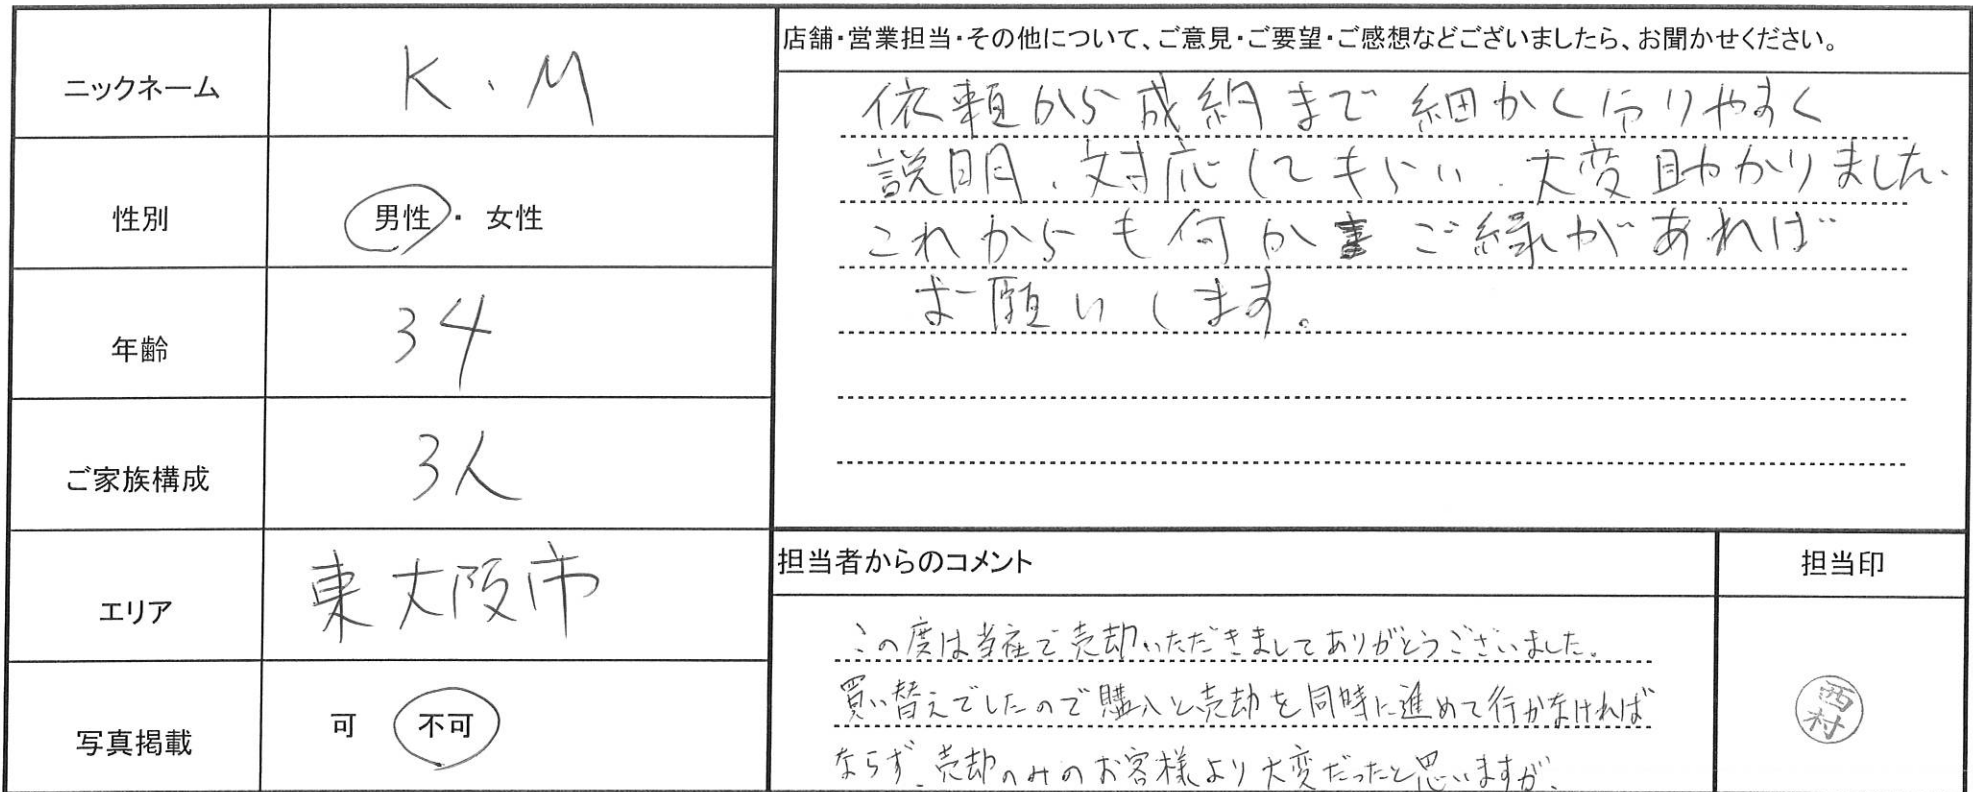 ニックネーム
K.M
性別
男性・女性
年齢
34
ご家族構成
3人
エリア
東大阪市
写真掲載
可 不可
店舗・営業担当・その他について、ご意見・ご要望・ご感想などございましたら、お聞かせください。
依頼から成約まで細かく分りやすく
説明、対応してもらい、大変助かりました。
これからも何かご縁があれば
お願いします。
担当者からのコメント
この度は当社で売却いただきましてありがとうございました。
買い替えでしたので購入と売却を同時に進めて行かなければ
ならず、売却のみのお客様より大変だったと思いますが、
担当印
西村